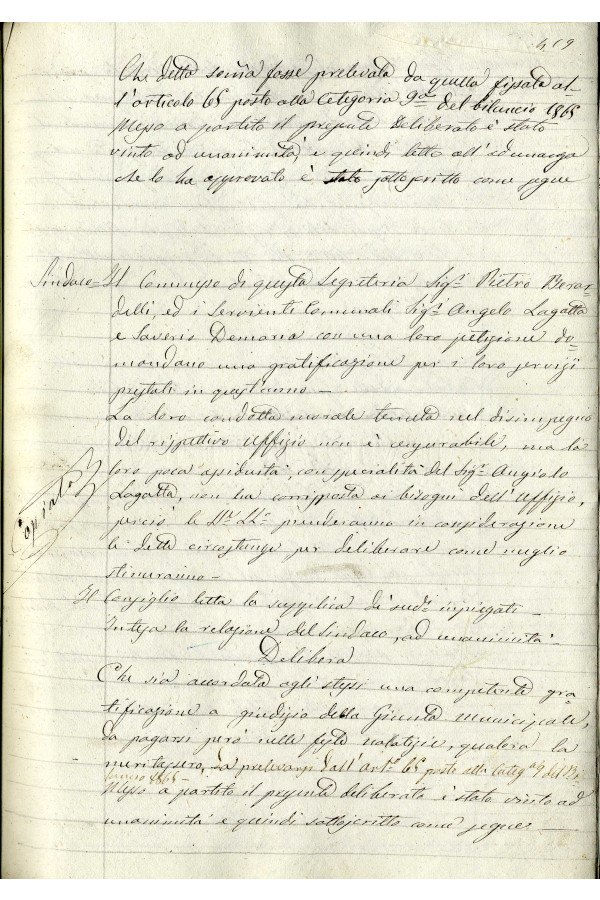 419
Che detta somma fosse prelevata da quella fissata al-
l'articolo 65 posto alla Categoria 9ª del bilancio 1865
Messo a partito il presente deliberato è stato
vinto ad unanimità, e quindi letto all'adunanza
che lo ha approvato è stato sottoscritto come segue
Sindaco = Il Commesso di questa Segreteria Sigr Pietro Berar-
delli, ed i serventi Comunali Sigr Angelo Lagatta
e Saverio Demaria con una loro petizione do-
mandano una gratificazione per i loro servizii
prestati in quest'anno —
La loro condotta morale tenuta nel disimpegno
del rispettivo Uffizio non è censurabile, ma la
loro poca assiduità, con specialità del Sigr Angiolo
Lagatta, non ha corrisposto ai bisogni dell'Uffizio,
perciò le prenderanno in considerazione
le dette circostanze per deliberare come meglio
stimeranno —
Copiato
Il Consiglio letta la supplica de' sudi impiegati —
Intesa la relazione del Sindaco, ad unanimità —
Delibera
Che sia accordata agli stessi una competente gra-
tificazione a giudizio della Giunta Municipale,
da pagarsi però nelle feste natalizie, qualora la
meritassero, da prelevarsi dall'arto 65 posto alla Catega 9 del Bi-
lancio 1865 —
Messo a partito il presente deliberato è stato vinto ad
unanimità e quindi sottoscritto come segue —